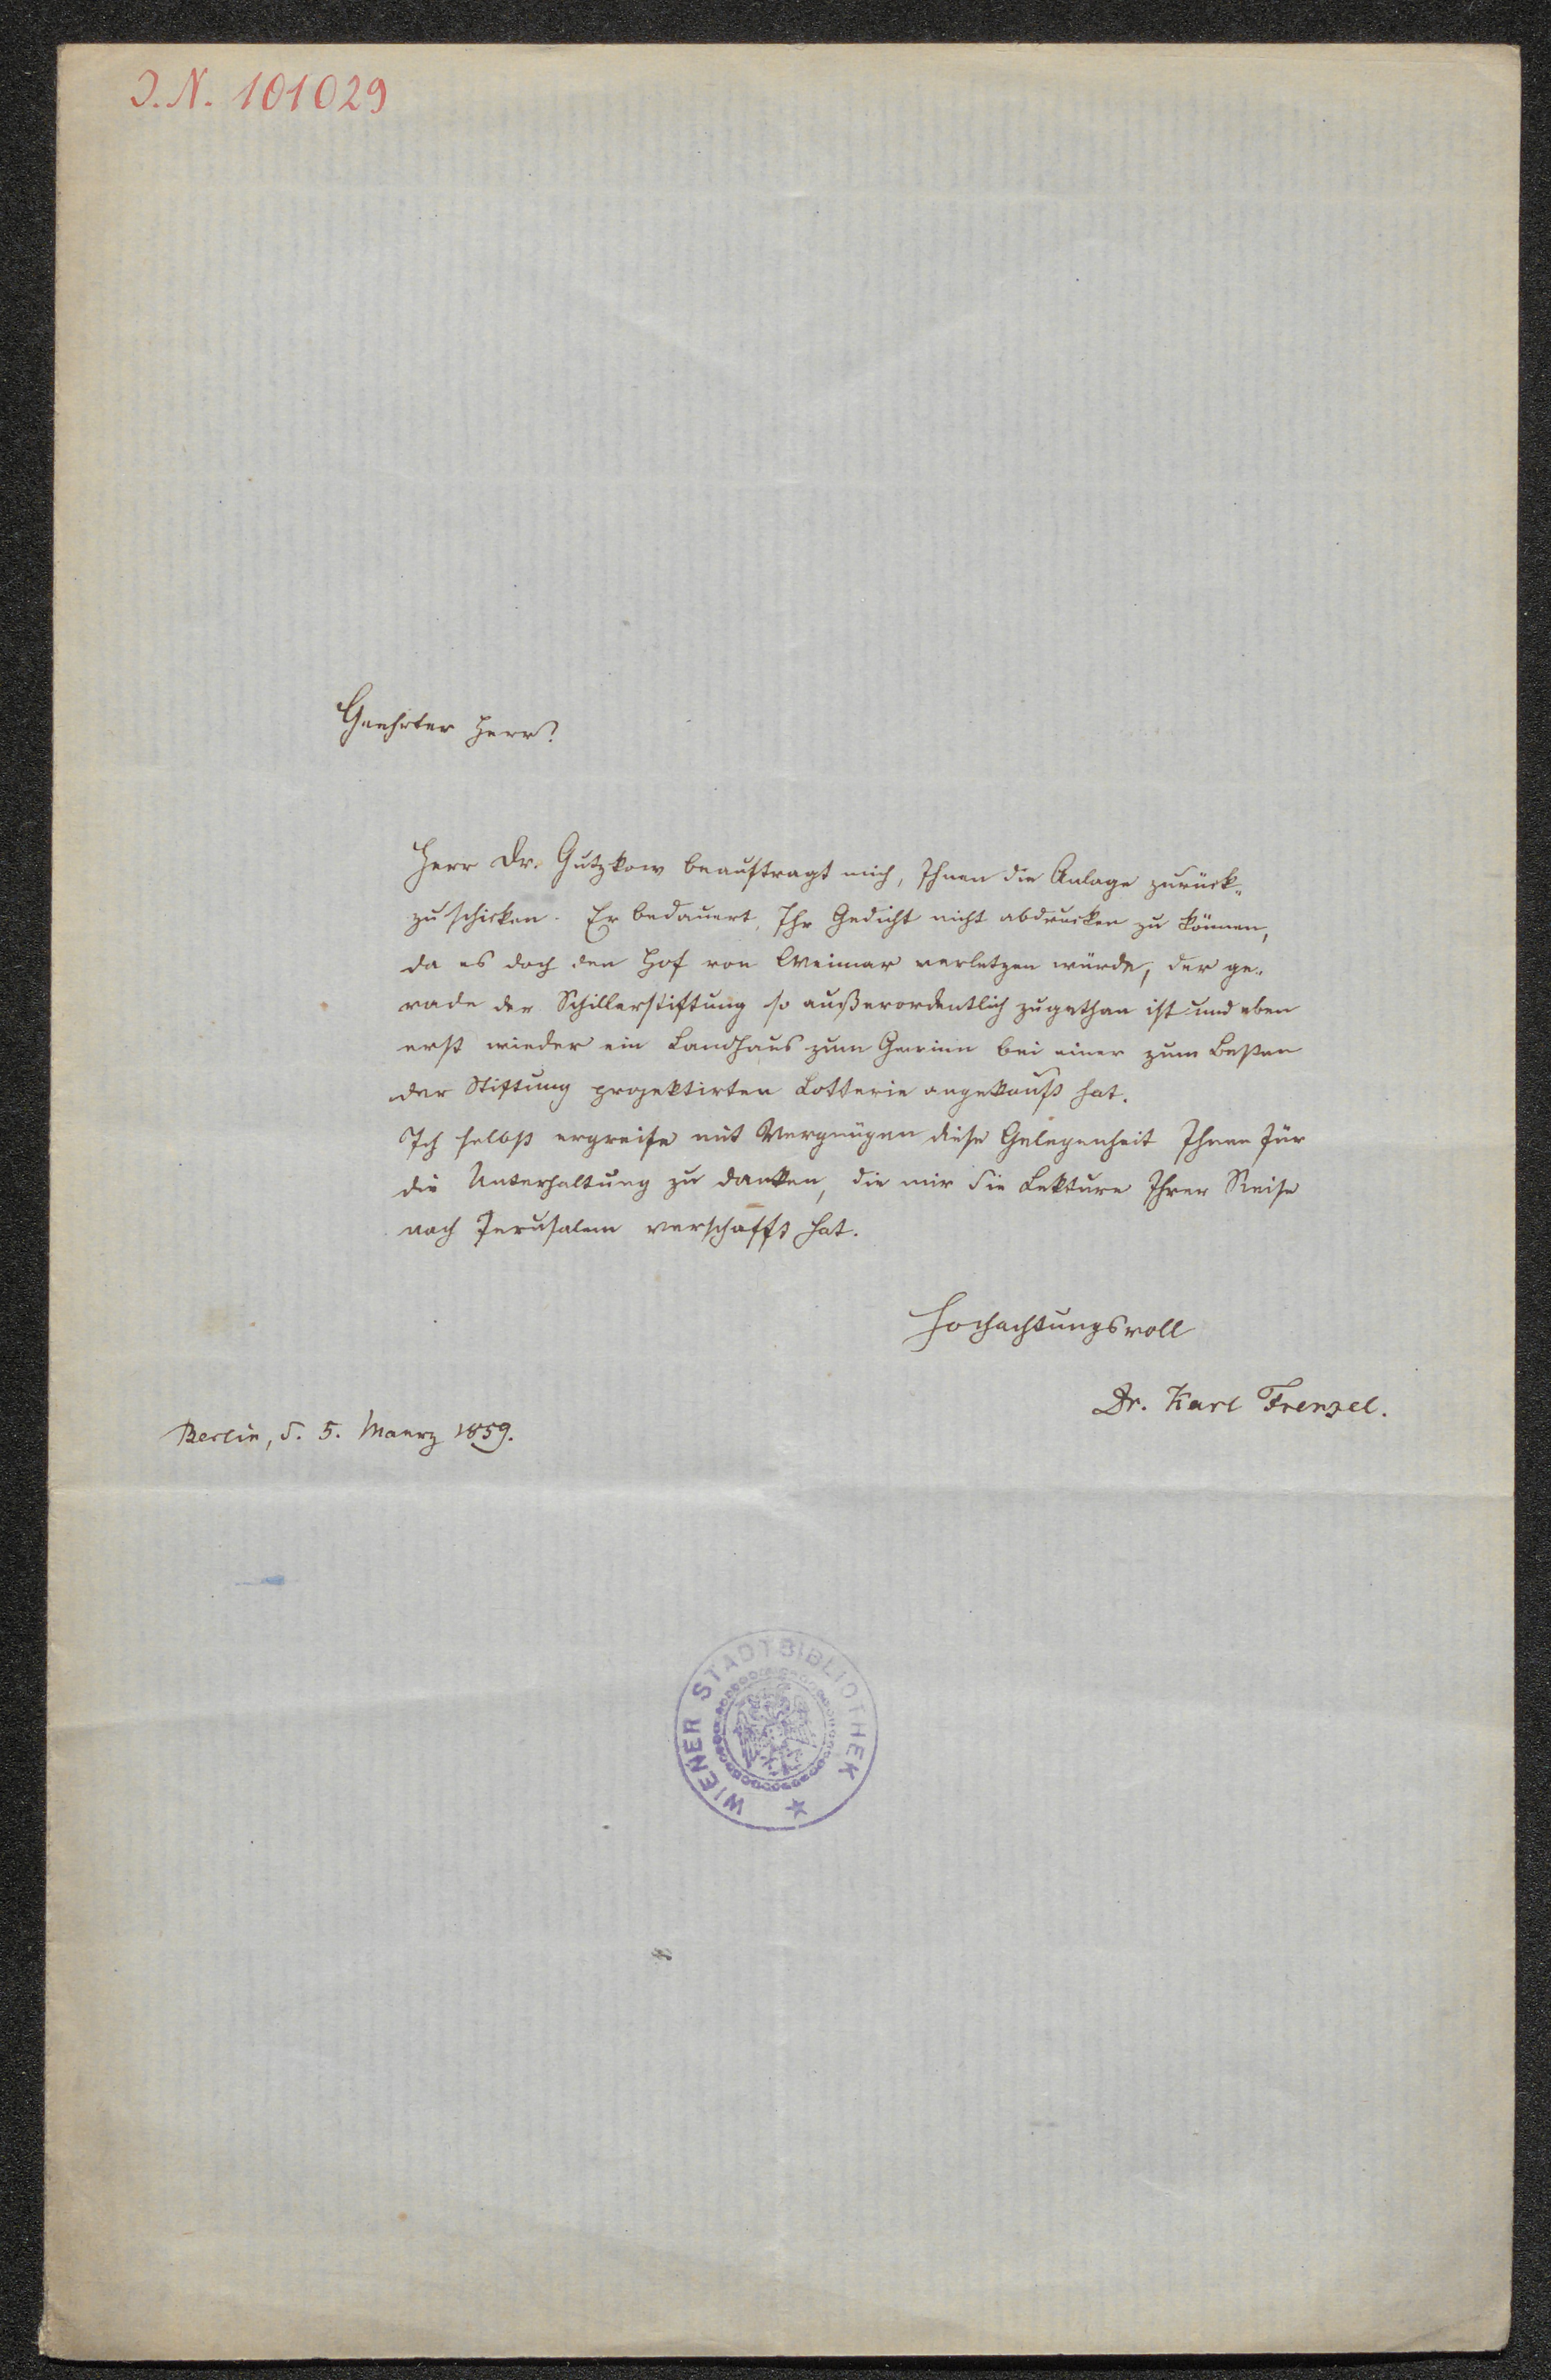 J.N. 101029
Geehrter Herr!
Herr Dr. Gutzkow beauftragt mich, Ihnen die Anlage zurück-
zuschicken. Er bedauert, Ihr Gedicht nicht abdrucken zu können,
da es doch den Hof von Weimar verletzen würde, der ge-
rade der Schillerstiftung so außerordentlich zugethan ist und eben
erst wieder ein Landhaus zum Gewinn bei einer zum Besten
der Stiftung projektirten Lotterie angekauft hat.
Ich selbst ergreife mit Vergnügen diese Gelegenheit Ihnen für
die Unterhaltung zu danken, die mir die Lekture Ihrer Reise
nach Jerusalem verschafft hat.
Hochachtungsvoll
Dr. Karl Frenzel.
Berlin, d. 5. Maerz 1859.
WIENER STADTBIBLIOTHEK